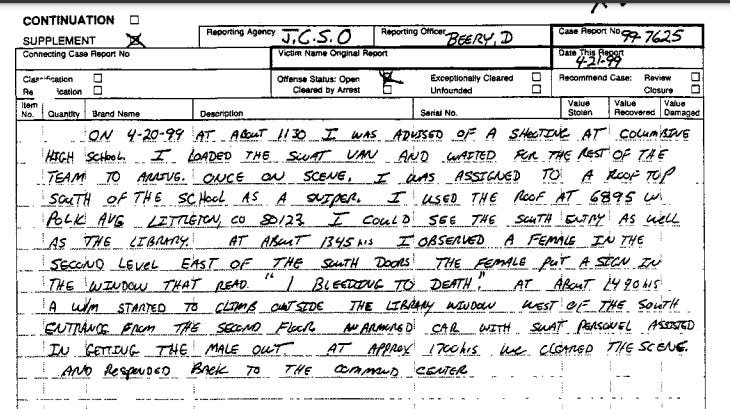 CONTINUATION
SUPPLEMENT
Reporting Agency J.C.S.O
Reporting Officer BEERY, D
Case Report No 99-7625
Connecting Case Report No
Victim Name Original Report
Date This Report 4-21-99
Classification
Offense Status: Open
Exceptionally Cleared
Recommend Case: Review
Cleared by Arrest
Unfounded
Closure
Item No. Quantity Brand Name Description Serial No. Value Stolen Value Recovered Value Damaged
ON 4-20-99 AT ABOUT 1130 I WAS ADVISED OF A SHOOTING AT COLUMBINE
HIGH SCHOOL. I LOADED THE SWAT VAN AND WAITED FOR THE REST OF THE
TEAM TO ARRIVE. ONCE ON SCENE, I WAS ASSIGNED TO A ROOF TOP
SOUTH OF THE SCHOOL AS A SNIPER. I USED THE ROOF AT 6895 W
POLK AVG LITTLETON, CO 80123 I COULD SEE THE SOUTH ENTRY AS WELL
AS THE LIBRARY. AT ABOUT 1345 hrs I OBSERVED A FEMALE IN THE
SECOND LEVEL EAST OF THE SOUTH DOORS THE FEMALE PUT A SIGN IN
THE WINDOW THAT READ "1 BLEEDING TO DEATH". AT ABOUT hrs
A W/M STARTED TO CLIMB OUTSIDE THE LIBRARY WINDOW WEST OF THE SOUTH
ENTRANCE FROM THE SECOND FLOOR CAR WITH SWAT PERSONEL ASSISTED
IN GETTING THE MALE OUT. AT APPROX 1700 hrs WE CLEARED THE SCENE.
AND RESPONDED BACK TO THE COMMAND CENTER